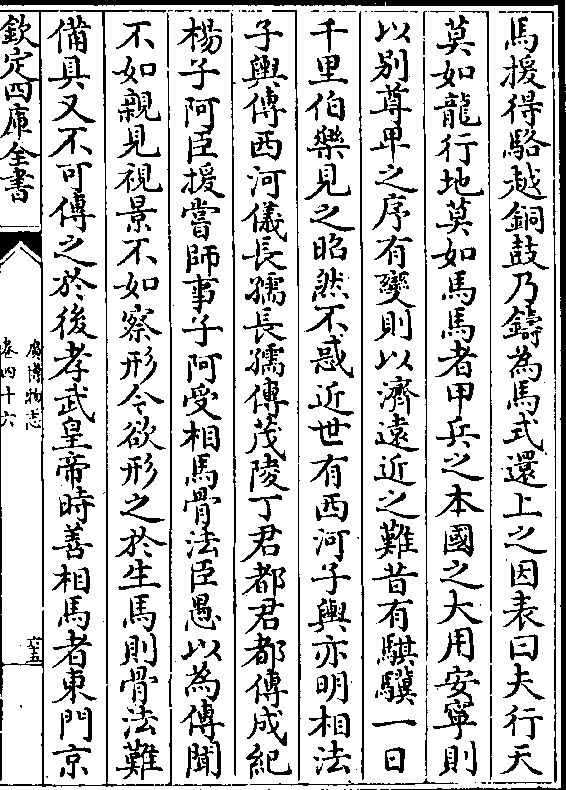 馬援得駱越銅鼓乃鑄為馬式還上之因表曰夫行天
莫如龍行地莫如馬馬者甲兵之本國之大用安寧則
以别尊卑之序有變則以濟遠近之難昔有騏驥一日
千里伯樂見之昭然不惑近世有西河子輿亦明相法
子輿傳西河儀長孺長孺傳茂陵丁君都君都傳成紀
楊子阿臣援嘗師事子阿受相馬骨法臣愚以為傳聞
不如親見視景不如察形今欲形之於生馬則骨法難
備具又不可傳之於後孝武皇帝時善相馬者東門京
欽定四庫全書
廣博物志
卷四十六